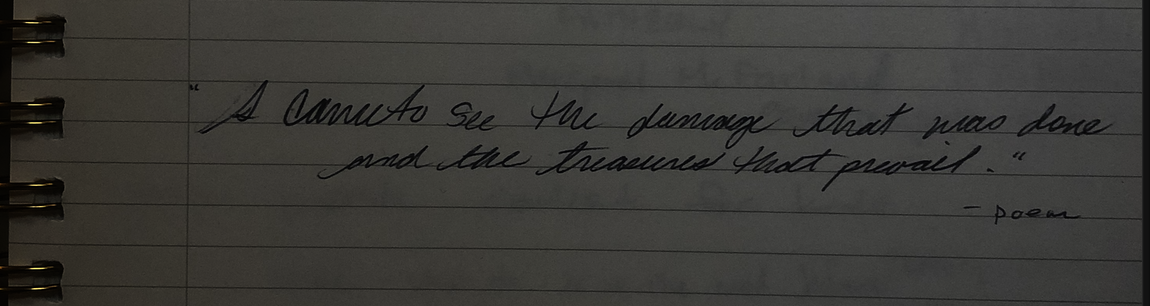 "I came to see the damage that was done
and the treasures that prevail."
- poem